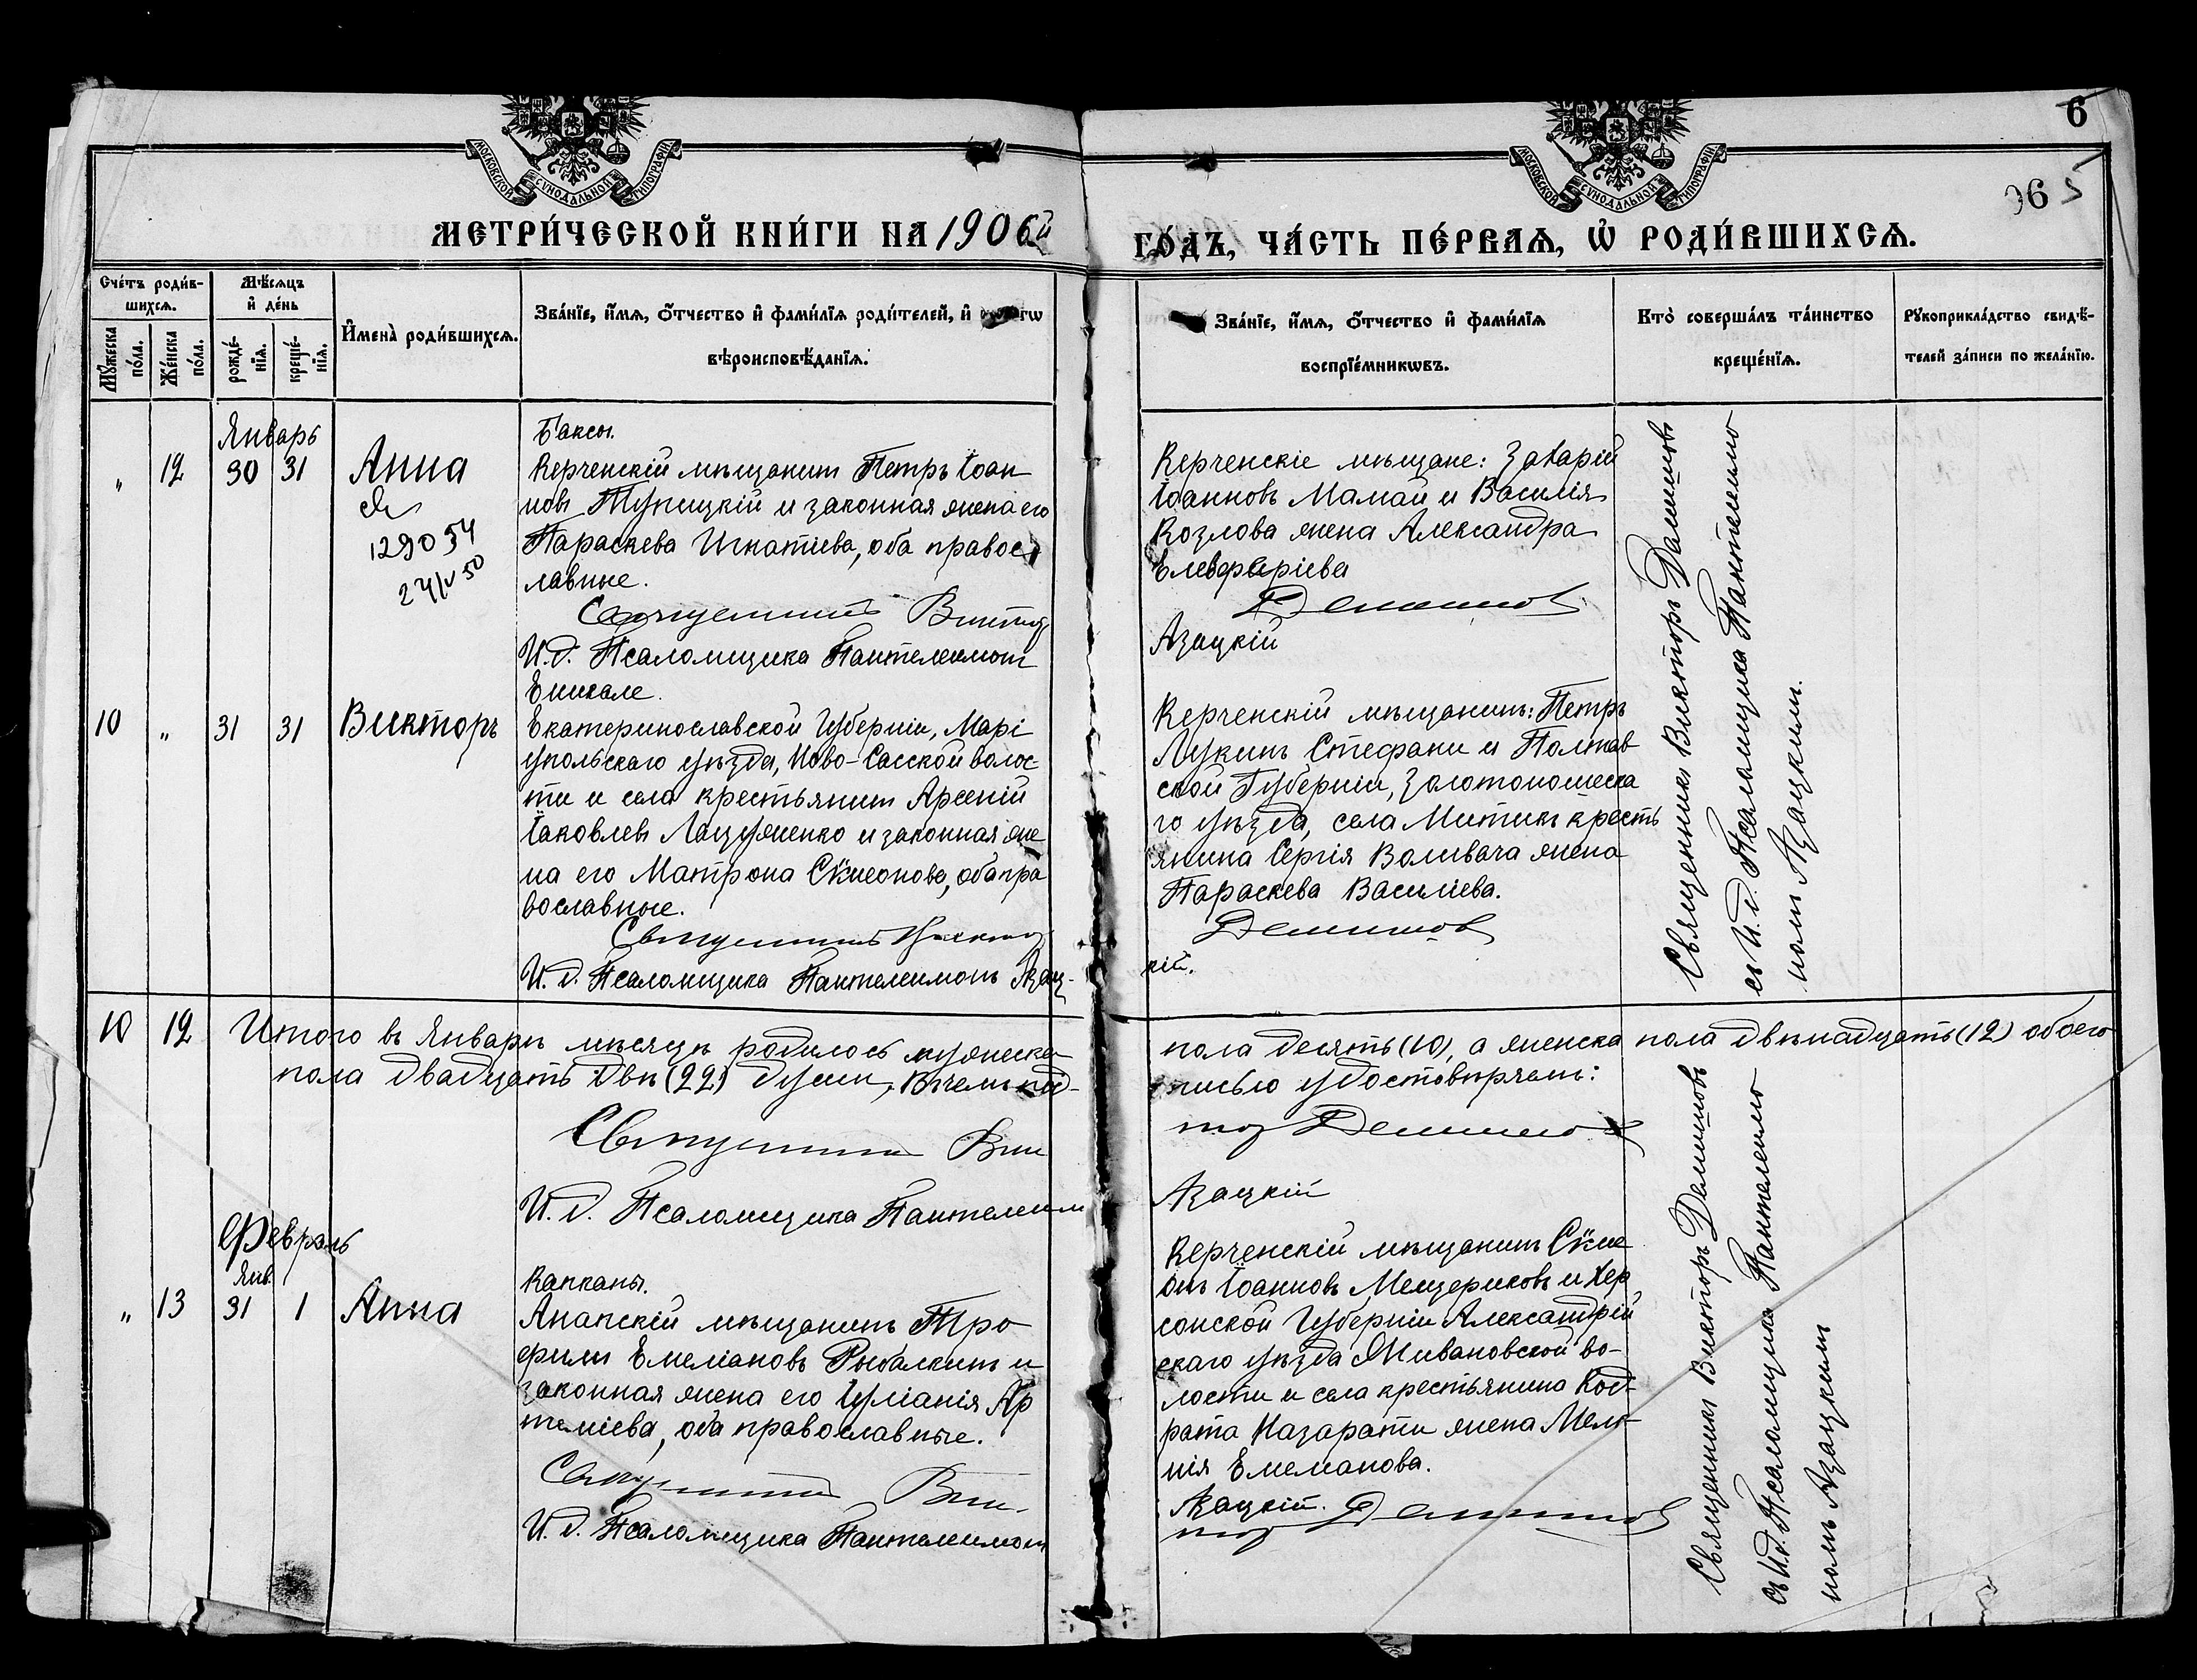 6
965
МОСКОВСКОЙ СѴНОДАЛЬНОЙ ТИПОГРАФІИ
МОСКОВСКОЙ СѴНОДАЛЬНОЙ ТИПОГРАФІИ
МЕТРИ́ЧЕСКОЙ КНИ́ГИ НА 1906й
ГО́ДЪ, ЧА́СТЬ ПЕ́РВАѦ, Ѡ҆ РОДИ́ВШИХСѦ.
Сче́тъ роди́в-
шихсѧ.
Мꙋ́жеска по́ла.
Же́нска по́ла.
Мѣ́сѧцъ
и҆ де́нь
рожде́-нїѧ.
креще́-нїѧ.
И҆мена̀ роди́вшихсѧ.
Зва́нїе, и҆́мѧ, ѻ҆́тчество и҆ фами́лїѧ роди́телей, и҆
вѣроисповѣ́данїѧ.
Зва́нїе, и҆́мѧ, ѻ҆́тчество и҆ фами́лїѧ
воспрїе́мникѡвъ.
Кто̀ соверша́лъ та́инство
креще́нїѧ.
Рꙋкоприкла́дство свидѣ́-
телей за́писи по жела́нїю.
Январь
„ 12 30 31 Анна
129054
24/V 50
Баксы.
Керченскій мѣщанинъ Петръ Іоан
новъ Тупицкій и законная жена его
Параскева Игнатіева, оба правос
лавные.
Священникъ Виктор
И.д. Псаломщика Пантелеимонъ
Керченскіе мѣщане: Захарій
Іоанновъ Мамай и Василія
Козлова жена Александра
Елевферіева
Демишов
Азацкій
Священникъ Викторъ Демишовъ
съ И.д. Псаломщика Пантелеимо
номъ Азацкимъ.
10 „ 31 31 Викторъ
Еникале.
Екатеринославской Губерніи, Марі
упольскаго уѣзда, Ново-Сасской волос
ти и села крестьянинъ Арсеній
Іаковлевъ Лацуженко и законная же
на его Матрона Сѵмеонова, оба пра
вославные.
Священникъ Виктор
И.д. Псаломщика Пантелеимонъ Азац-
Керченскій мѣщанинъ: Петръ
Лукинъ Стефани и Полтав
ской Губерніи, Золотоношска
го уѣзда, села Митикъ кресть
янина Сергія Воливача жена
Параскева Василіева.
Демишов
кій.
10 12 Итого въ Январѣ мѣсяцѣ родилось мужеска
пола десять (10), а женска пола двѣнадцать (12) обоего
пола двадцать двѣ (22) души, въ чемъ под-
писью удостовѣряемъ:
Священникъ Вик
тор Демишов
И.д. Псаломщика Пантелеим
Азацкій
Февраль
Янв.
„ 13 31 1 Анна
Капканы.
Анапскій мѣщанинъ Тро
фимъ Емеліановъ Рыбалкинъ и
законная жена его Іуліанія Ар
теміева, оба православные.
Священникъ Вик
И.д. Псаломщика Пантелеимон
Керченскій мѣщанинъ Сѵме
онъ Іоанновъ Мещериковъ и Хер
сонской Губерніи Александрій
скаго уѣзда Ивановской во-
лости и села крестьянина Код-
рата Назарати жена Мела-
нія Емеліанова.
Азацкій.
тор Демишов
Священникъ Викторъ Демишовъ
съ И.д. Псаломщика Пантелеимо
номъ Азацкимъ